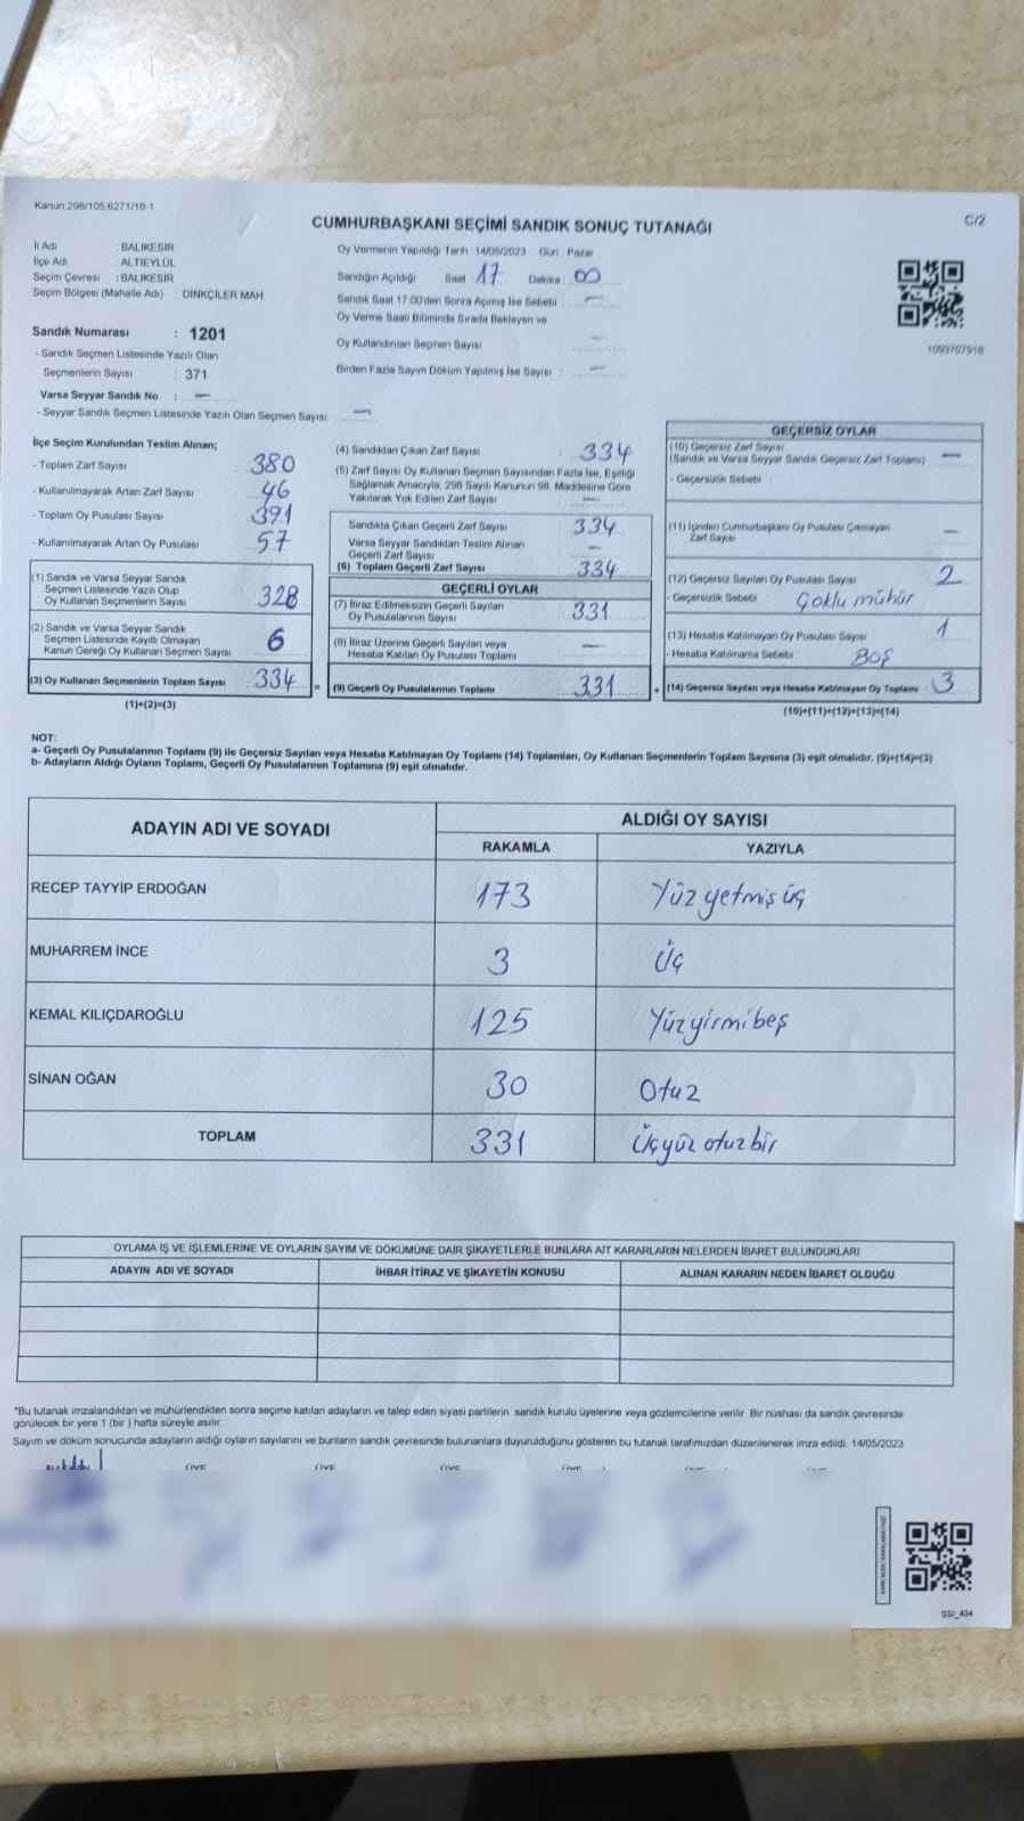 Kanun:298/105.6271/18-1
C/2
CUMHURBAŞKANI SEÇİMİ SANDIK SONUÇ TUTANAĞI
İl Adı : BALIKESİR
İlçe Adı : ALTIEYLÜL
Seçim Çevresi : BALIKESİR
Seçim Bölgesi (Mahalle Adı) : DİNKÇİLER MAH.
Sandık Numarası : 1201
- Sandık Seçmen Listesinde Yazılı Olan
Seçmenlerin Sayısı : 371
Varsa Seyyar Sandık No : —
- Seyyar Sandık Seçmen Listesinde Yazılı Olan Seçmen Sayısı —
Oy Vermenin Yapıldığı Tarih : 14/05/2023 Gün : Pazar
Sandığın Açıldığı Saat 17 Dakika 00
Sandık Saat 17:00'den Sonra Açılmış İse Sebebi —
Oy Verme Saati Bitiminde Sırada Bekleyen ve
Oy Kullandırılan Seçmen Sayısı —
Birden Fazla Sayım Döküm Yapılmış İse Sayısı : —
1099707918
İlçe Seçim Kurulundan Teslim Alınan;
- Toplam Zarf Sayısı 380
- Kullanılmayarak Artan Zarf Sayısı 46
- Toplam Oy Pusulası Sayısı 391
- Kullanılmayarak Artan Oy Pusulası 57
(1) Sandık ve Varsa Seyyar Sandık
Seçmen Listesinde Yazılı Olup
Oy Kullanan Seçmenlerin Sayısı 328
(2) Sandık ve Varsa Seyyar Sandık
Seçmen Listesinde Kayıtlı Olmayan
Kanun Gereği Oy Kullanan Seçmen Sayısı 6
(3) Oy Kullanan Seçmenlerin Toplam Sayısı 334
(1)+(2)=(3)
(4) Sandıktan Çıkan Zarf Sayısı : 334
(5) Zarf Sayısı Oy Kullanan Seçmen Sayısından Fazla İse, Eşitliği
Sağlamak Amacıyla, 298 Sayılı Kanunun 98. Maddesine Göre
Yakılarak Yok Edilen Zarf Sayısı —
Sandıkta Çıkan Geçerli Zarf Sayısı 334
Varsa Seyyar Sandıktan Teslim Alınan
Geçerli Zarf Sayısı —
(6) Toplam Geçerli Zarf Sayısı 334
GEÇERLİ OYLAR
(7) İtiraz Edilmeksizin Geçerli Sayılan
Oy Pusulalarının Sayısı 331
(8) İtiraz Üzerine Geçerli Sayılan veya
Hesaba Katılan Oy Pusulası Toplamı —
= (9) Geçerli Oy Pusulalarının Toplamı 331
GEÇERSİZ OYLAR
(10) Geçersiz Zarf Sayısı
(Sandık ve Varsa Seyyar Sandık Geçersiz Zarf Toplamı) —
- Geçersizlik Sebebi
(11) İçinden Cumhurbaşkanı Oy Pusulası Çıkmayan
Zarf Sayısı —
(12) Geçersiz Sayılan Oy Pusulası Sayısı 2
- Geçersizlik Sebebi : Çoklu mühür
(13) Hesaba Katılmayan Oy Pusulası Sayısı 1
- Hesaba Katılmama Sebebi : BOŞ
+ (14) Geçersiz Sayılan veya Hesaba Katılmayan Oy Toplamı 3
(10)+(11)+(12)+(13)=(14)
NOT:
a- Geçerli Oy Pusulalarının Toplamı (9) ile Geçersiz Sayılan veya Hesaba Katılmayan Oy Toplamı (14) Toplamları, Oy Kullanan Seçmenlerin Toplam Sayısına (3) eşit olmalıdır. (9)+(14)=(3)
b- Adayların Aldığı Oyların Toplamı, Geçerli Oy Pusulalarının Toplamına (9) eşit olmalıdır.
ADAYIN ADI VE SOYADI
ALDIĞI OY SAYISI
RAKAMLA YAZIYLA
RECEP TAYYİP ERDOĞAN 173 Yüz yetmiş üç
MUHARREM İNCE 3 Üç
KEMAL KILIÇDAROĞLU 125 Yüzyirmibeş
SİNAN OĞAN 30 Otuz
TOPLAM 331 Üçyüz otuz bir
OYLAMA İŞ VE İŞLEMLERİNE VE OYLARIN SAYIM VE DÖKÜMÜNE DAİR ŞİKAYETLERLE BUNLARA AİT KARARLARIN NELERDEN İBARET BULUNDUKLARI
ADAYIN ADI VE SOYADI İHBAR İTİRAZ VE ŞİKAYETİN KONUSU ALINAN KARARIN NEDEN İBARET OLDUĞU
*Bu tutanak imzalandıktan ve mühürlendikten sonra seçime katılan adayların ve talep eden siyasi partilerin sandık kurulu üyelerine veya gözlemcilerine verilir. Bir nüshası da sandık çevresinde
görülecek bir yere 1 (bir) hafta süreyle asılır.
Sayım ve döküm sonucunda adayların aldığı oyların sayılarını ve bunların sandık çevresinde bulunanlara duyurulduğunu gösteren bu tutanak tarafımızdan düzenlenerek imza edildi. 14/05/2023
ÜYE ÜYE ÜYE